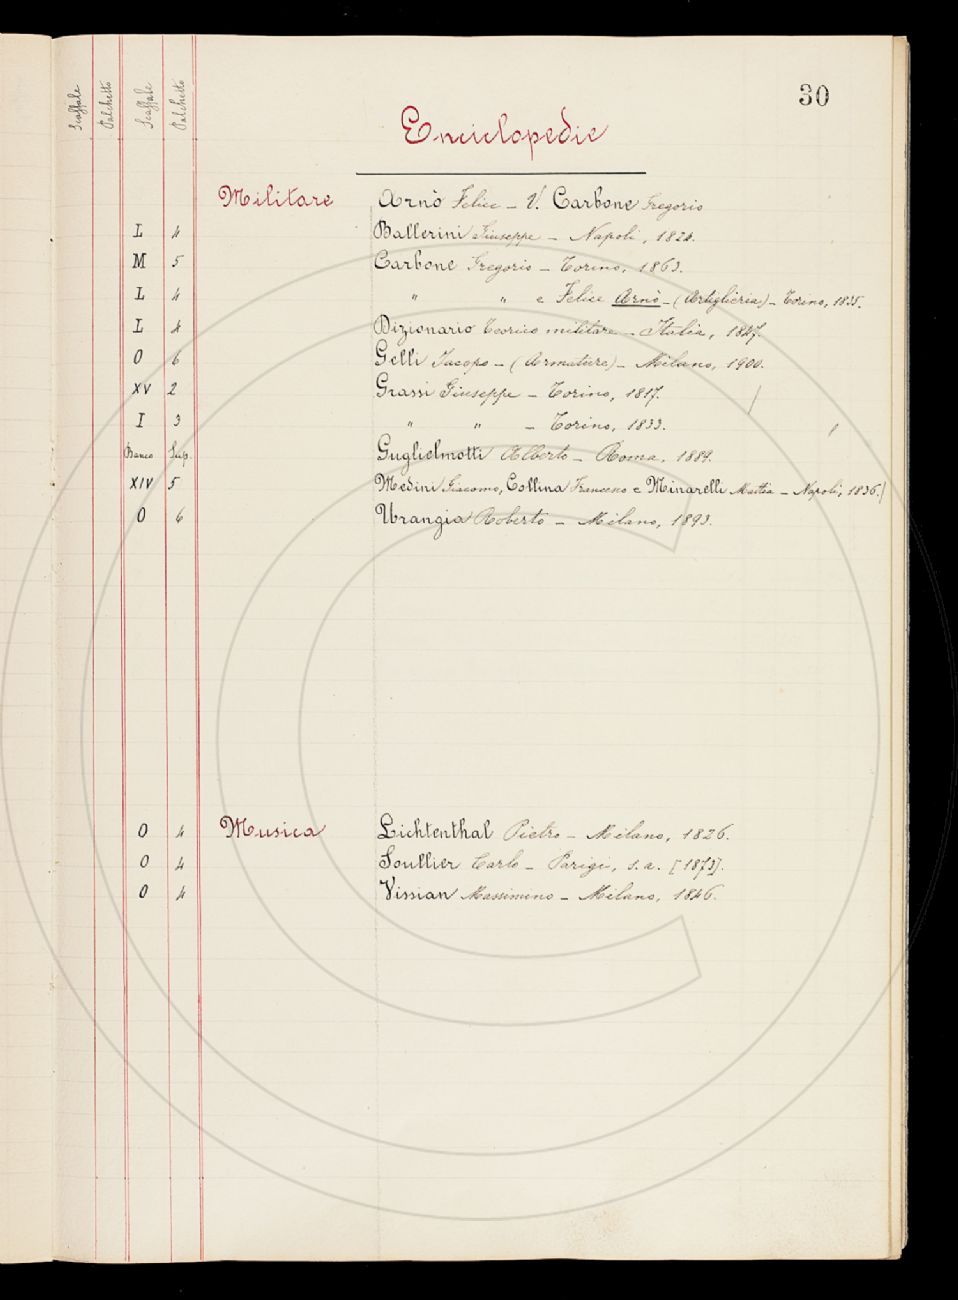 30
Scaffale Palchetto Scaffale Palchetto
Enciclopedie
Militare Arnò Felice - V. Carbone Gregorio
L 4 Ballerini Giuseppe - Napoli, 1824.
M 5 Carbone Gregorio - Torino, 1863.
L 4 " " e Felice Arnò - (Artiglieria) - Torino, 1835.
L 4 Dizionario Teorico militare - Italia, 1847.
O 6 Gelli Jacopo - (Armature) - Milano, 1900.
XV 2 Grassi Giuseppe - Torino, 1817.
I 3 " " - Torino, 1833.
Banco Sup. Guglielmotti Alberto - Roma, 1889.
XIV 5 Medini Giacomo, Collina Francesco e Minarelli Mattia - Napoli, 1836.
O 6 Urangia Roberto - Milano, 1893.
O 4 Musica Lichtenthal Pietro - Milano, 1826.
O 4 Soullier Carlo - Parigi, s.a. [1873].
O 4 Vissian Massimino - Milano, 1846.